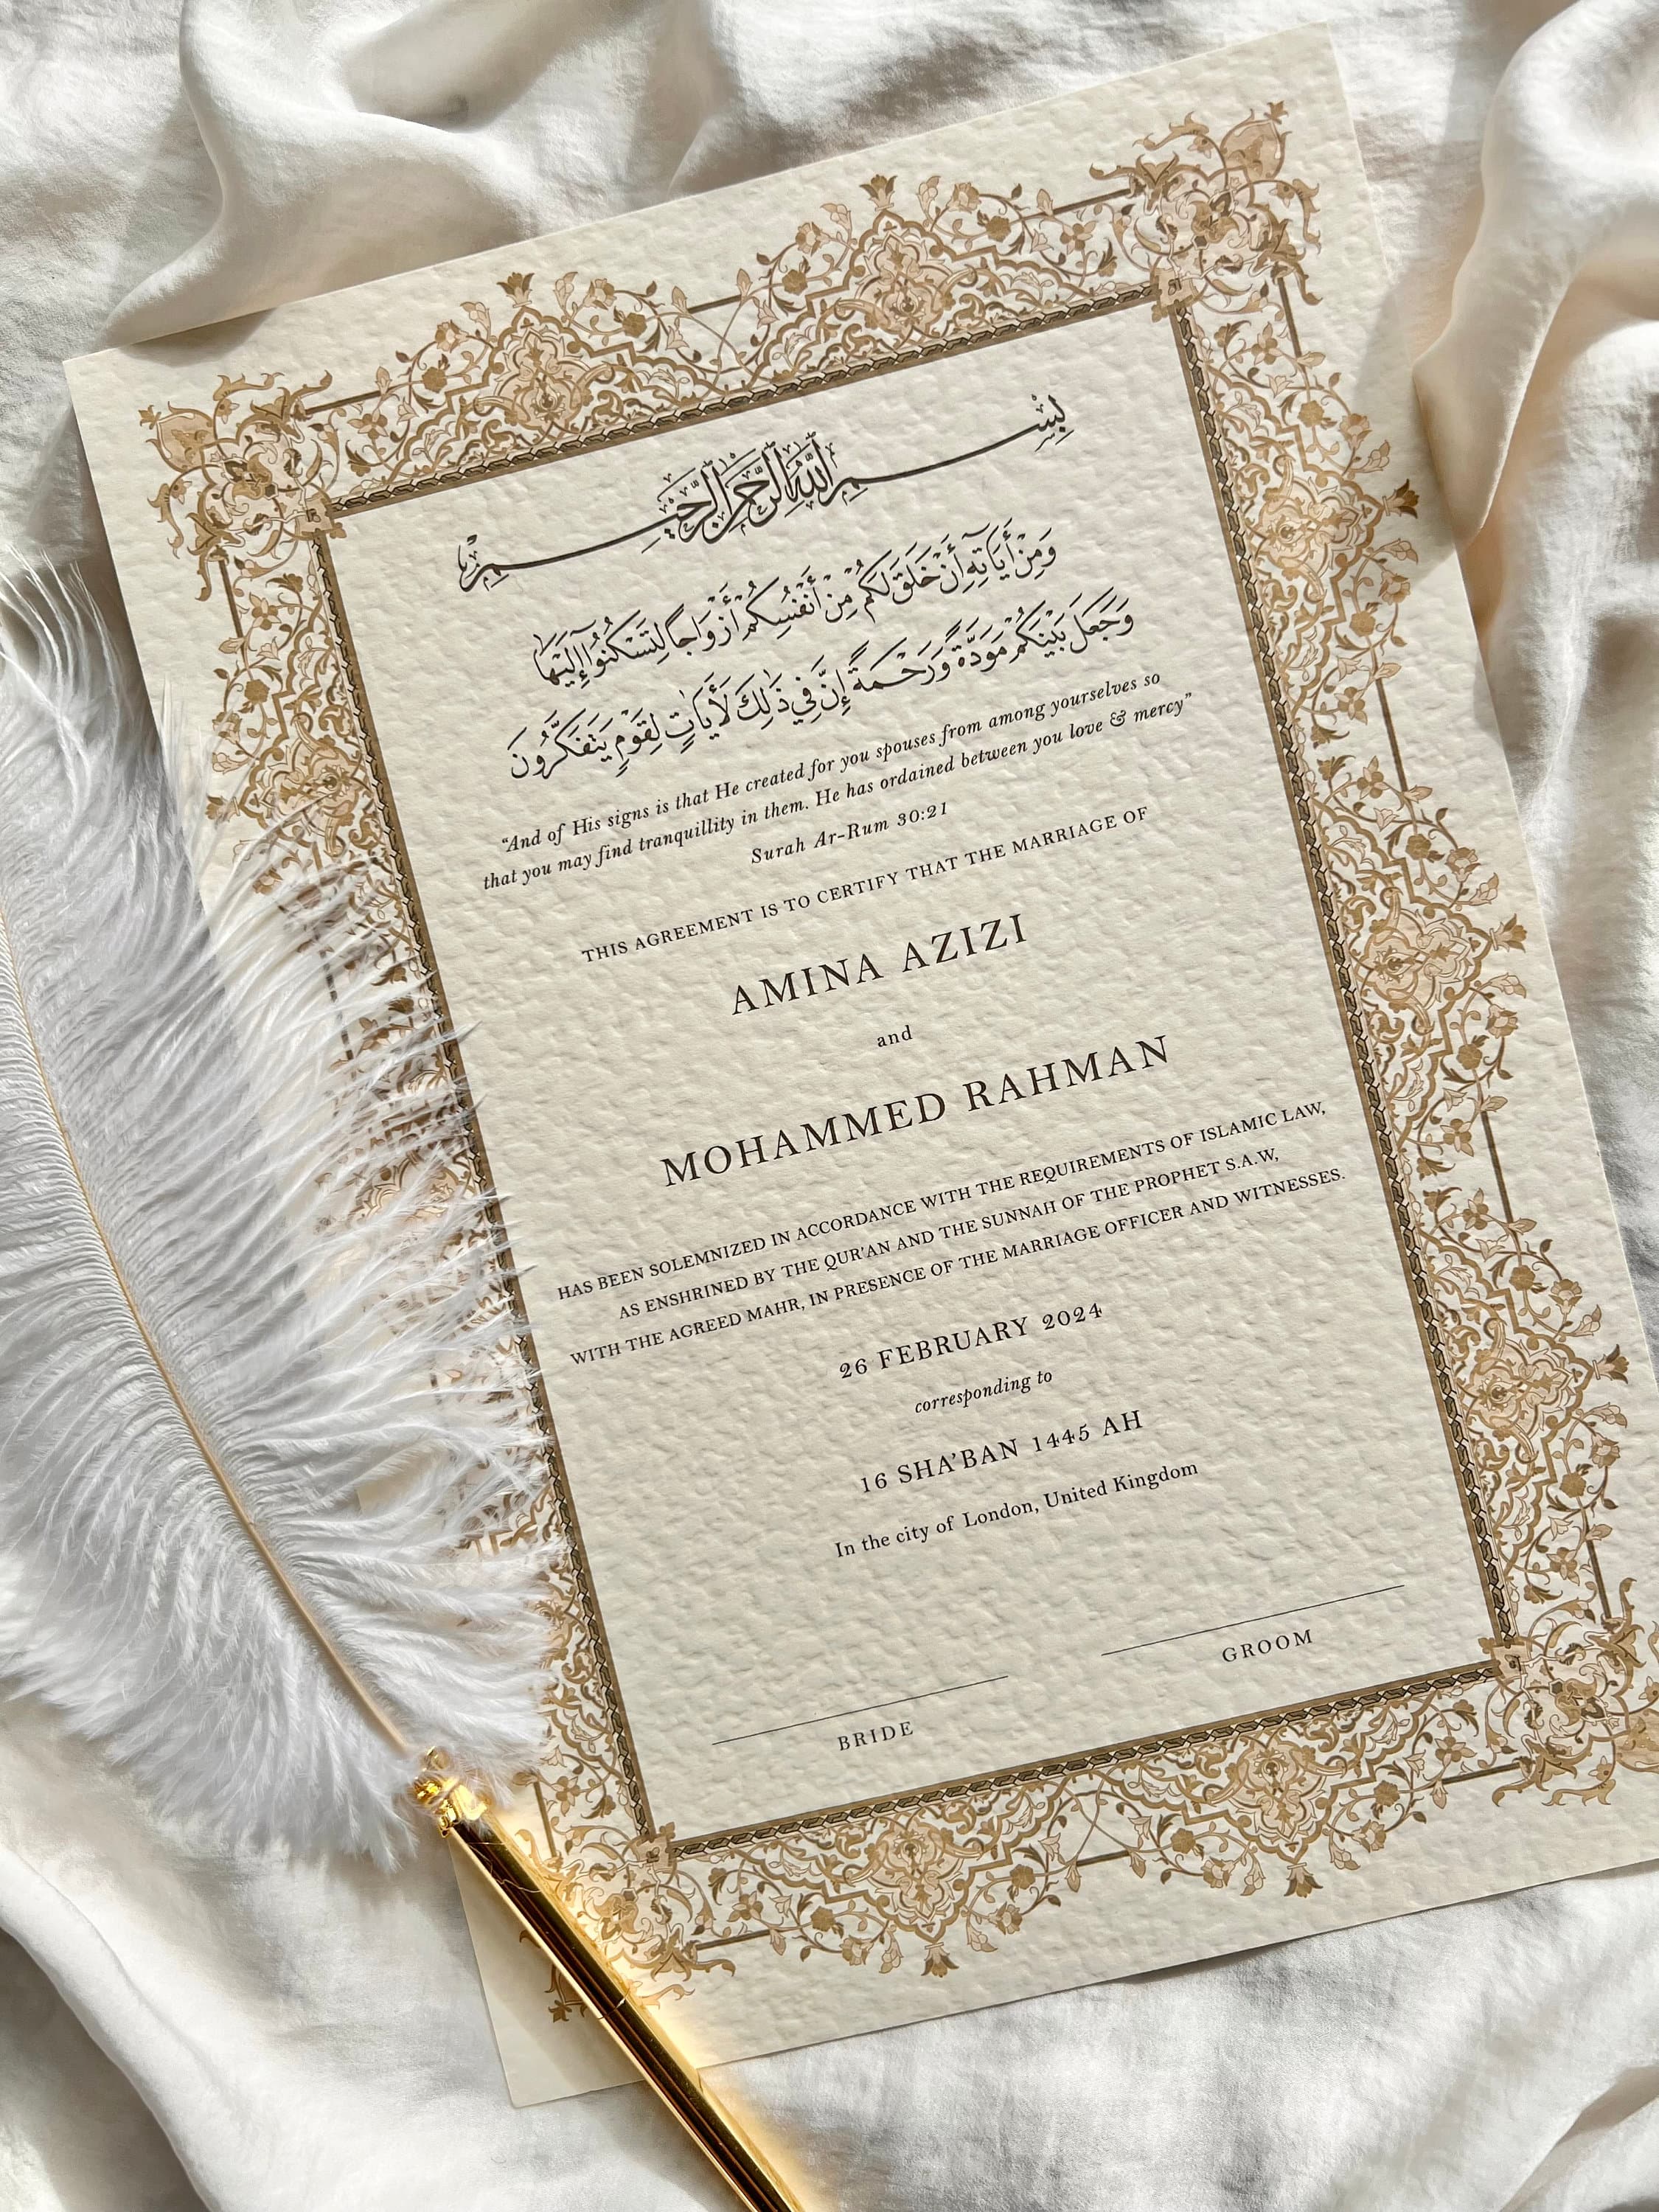 بِسْمِ اللَّهِ الرَّحْمَٰنِ الرَّحِيمِ
وَمِنْ أَيَاتِهِ أَنْ خَلَقَ لَكُمْ مِنْ أَنْفُسِكُمْ أَزْوَاجًا لِتَسْكُنُوا إِلَيْهَا
وَجَعَلَ بَيْنَكُمْ مَوَدَّةً وَرَحْمَةً إِنَّ فِي ذَٰلِكَ لَأَيَاتٍ لِقَوْمٍ يَتَفَكَّرُونَ
“And of His signs is that He created for you spouses from among yourselves so
that you may find tranquillity in them. He has ordained between you love & mercy”
Surah Ar-Rum 30:21
THIS AGREEMENT IS TO CERTIFY THAT THE MARRIAGE OF
AMINA AZIZI
and
MOHAMMED RAHMAN
HAS BEEN SOLEMNIZED IN ACCORDANCE WITH THE REQUIREMENTS OF ISLAMIC LAW,
AS ENSHRINED BY THE QUR'AN AND THE SUNNAH OF THE PROPHET S.A.W,
WITH THE AGREED MAHR, IN PRESENCE OF THE MARRIAGE OFFICER AND WITNESSES.
26 FEBRUARY 2024
corresponding to
16 SHA’BAN 1445 AH
In the city of London, United Kingdom
BRIDE
GROOM